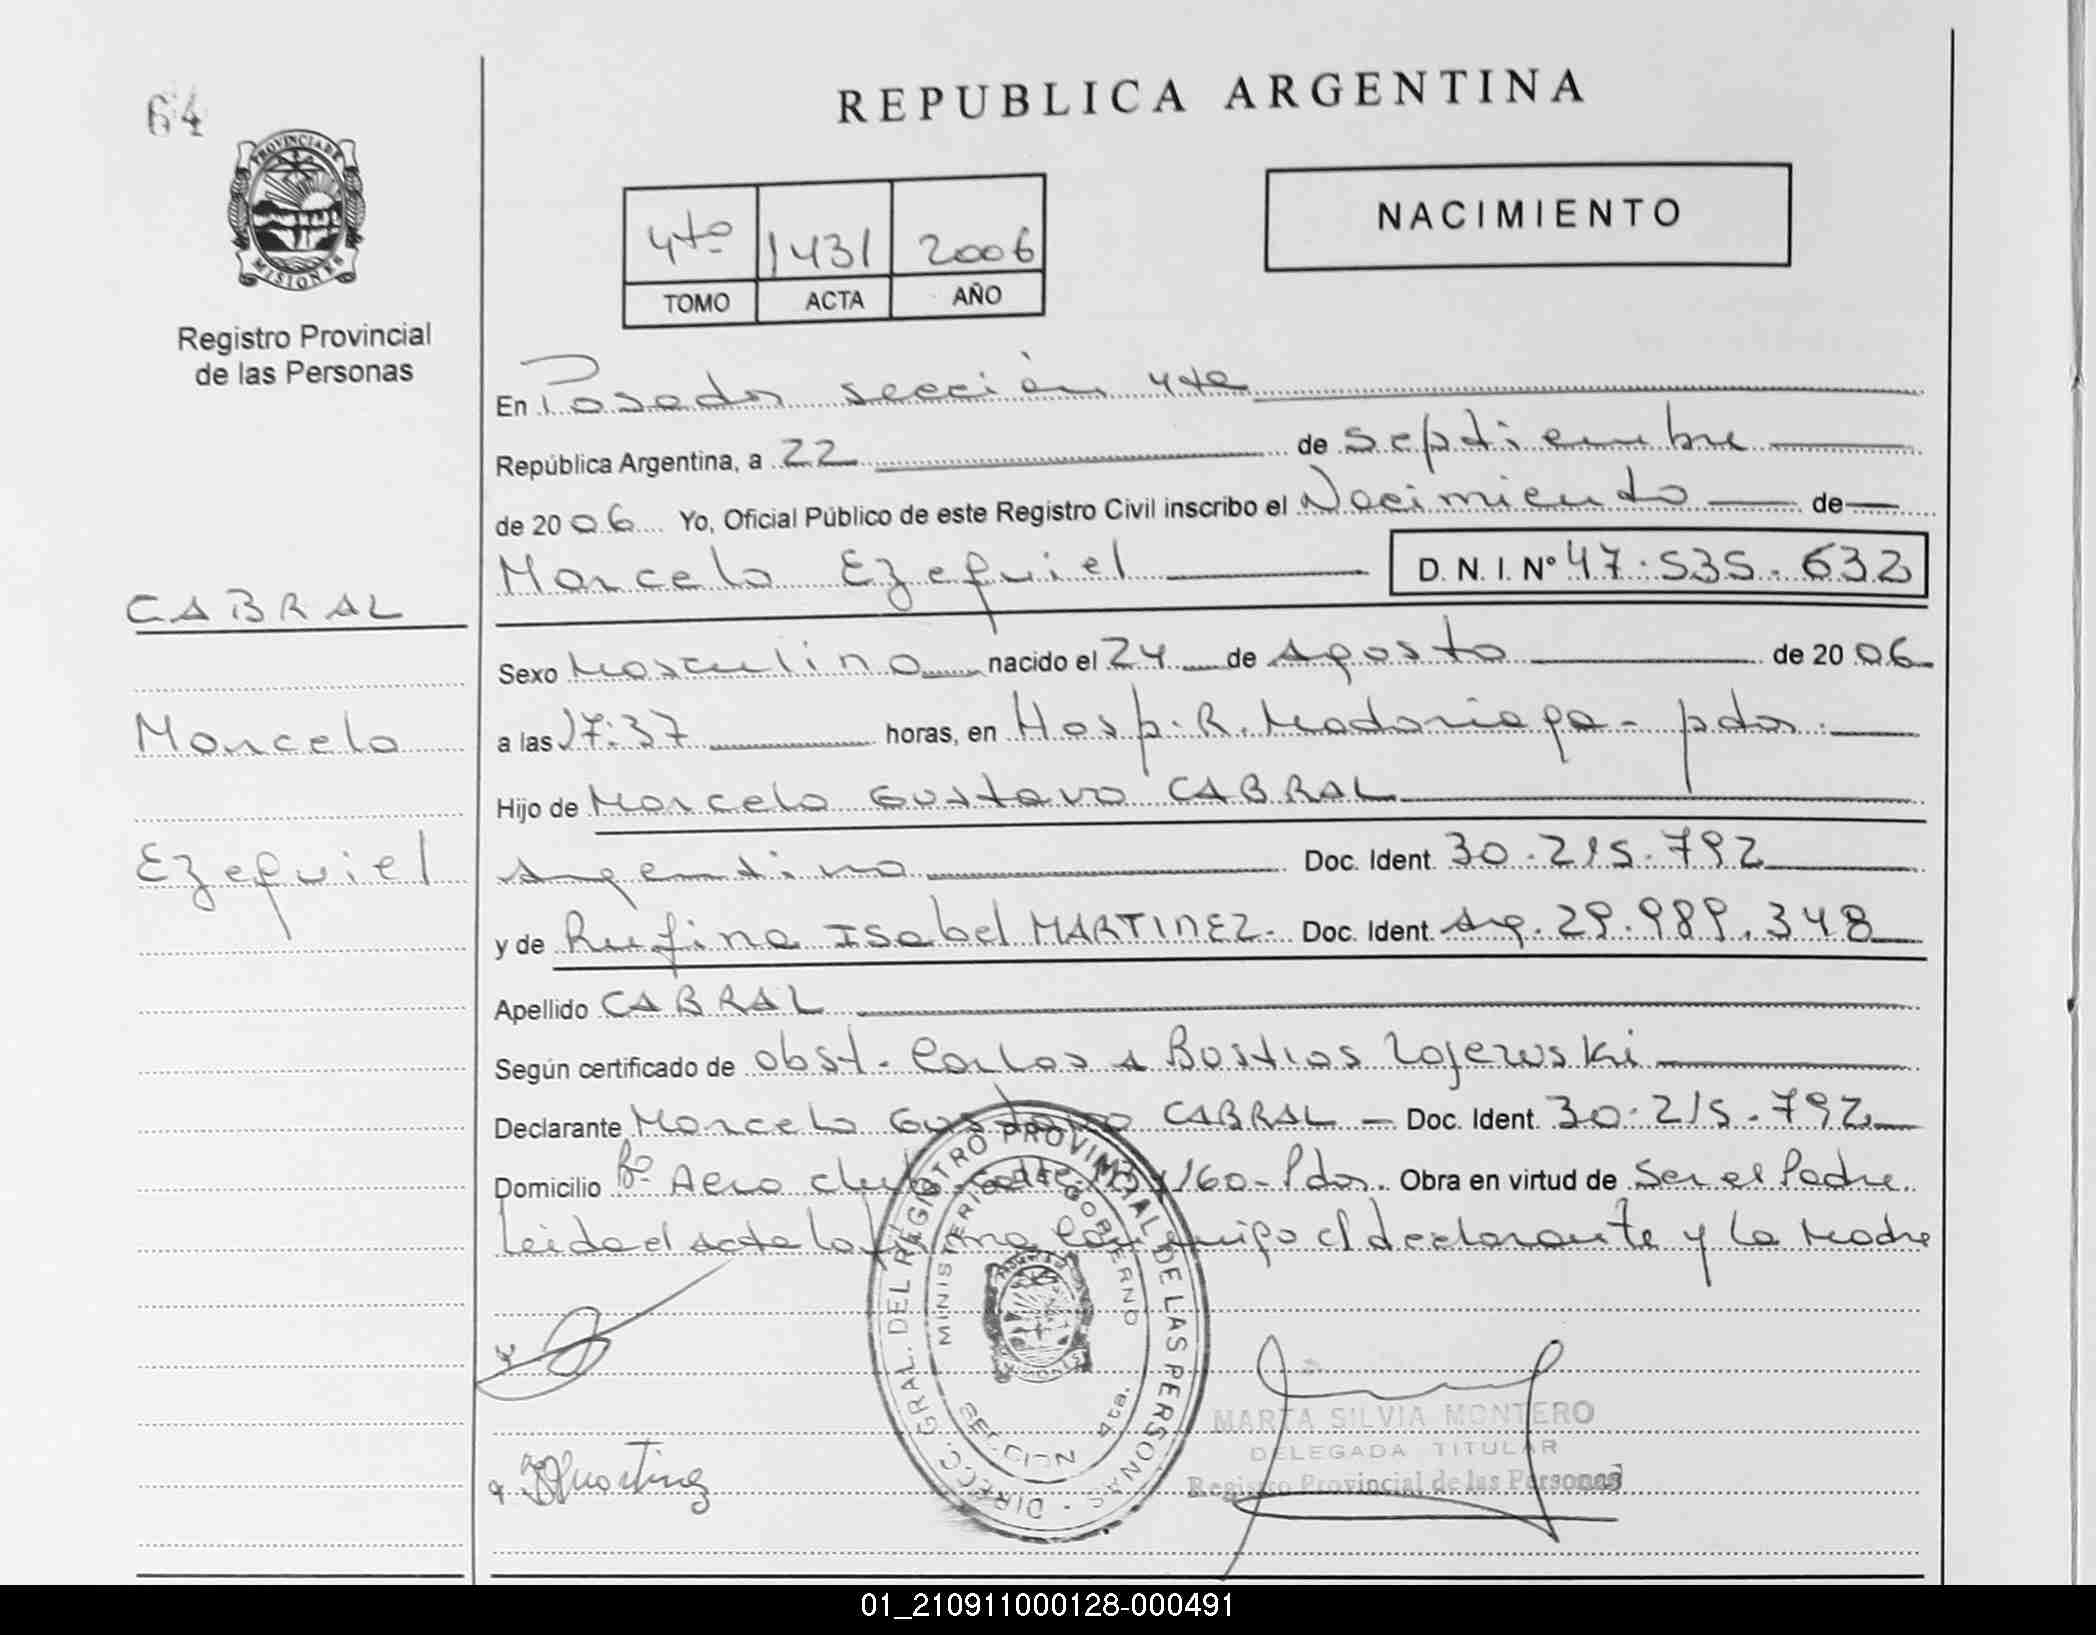 64
PROVINCIA DE
MISIONES
Registro Provincial
de las Personas
REPUBLICA ARGENTINA
4to 1431 2006
TOMO ACTA AÑO
NACIMIENTO
En Posadas sección 4ta
República Argentina, a 22 de septiembre
de 2006 Yo, Oficial Público de este Registro Civil inscribo el Nacimiento de
Marcelo Ezequiel D.N.I. Nº 47.535.632
CABRAL
Marcelo
Ezequiel
Sexo Masculino nacido el 24 de Agosto de 2006
a las 17:37 horas, en Hosp. R. Madariaga - pdas.
Hijo de Marcelo Gustavo CABRAL
Argentino Doc. Ident. 30.215.792
y de Rufina Isabel MARTINEZ. Doc. Ident. Arg. 29.989.348
Apellido CABRAL
Según certificado de obst. Carlos A Bustos Zajewski
Declarante Marcelo Gustavo CABRAL - Doc. Ident. 30.215.792
Domicilio Bº Aero club 160 - Pdas. Obra en virtud de Ser el Padre.
Leida el acta la firma el declarante y la Madre
DIRECC. GRAL. DEL REGISTRO PROVINCIAL DE LAS PERSONAS -
MINISTERIO DE GOBIERNO
SECCION 4ta.
Martinez
MARTA SILVIA MONTERO
DELEGADA TITULAR
Registro Provincial de las Personas
01_210911000128-000491